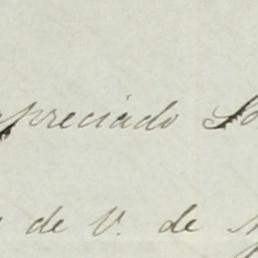 apreciado
de V. de